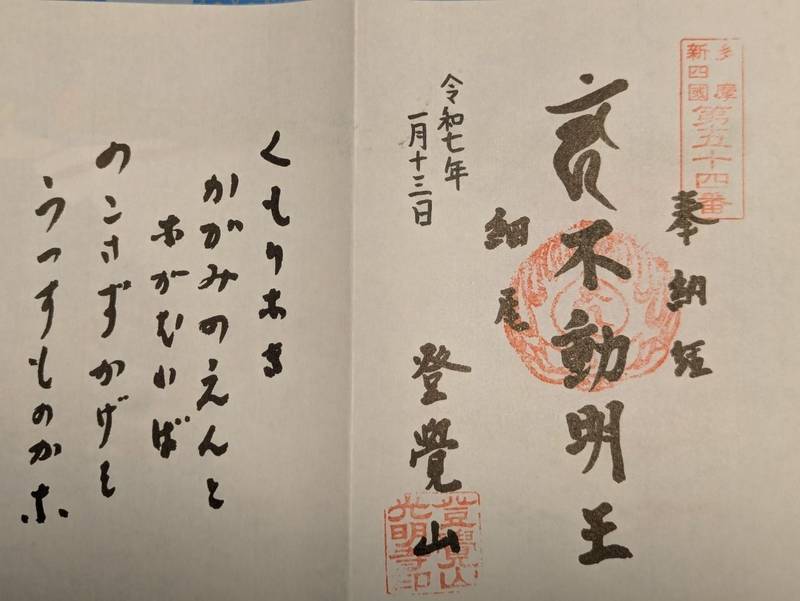 多摩
新四國
第五十四番
奉納経
不動明王
細尾
令和七年
一月十三日
登覺山
登覺山
光明寺印
くもりなき
かがみのえんと
ながむれば
のこさずかげを
うつすものかな